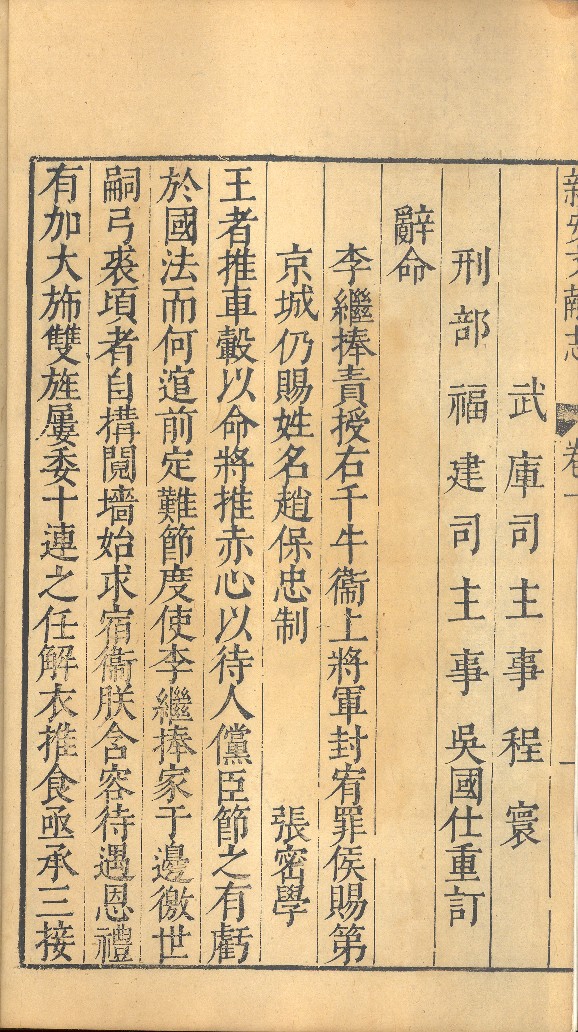 新安文獻志 卷一 一
武庫司主事程寰
刑部福建司主事吳國仕重訂
辭命
李繼捧責授右千牛衞上將軍封宥罪侯賜第
京城仍賜姓名趙保忠制 張密學
王者推車轂以命將推赤心以待人儻臣節之有虧
於國法而何逭前定難節度使李繼捧家于邊徼世
嗣弓裘頃者自搆鬩墻始求宿衞朕含容待遇恩禮
有加大斾雙旌屢委十連之任解衣推食亟承三接